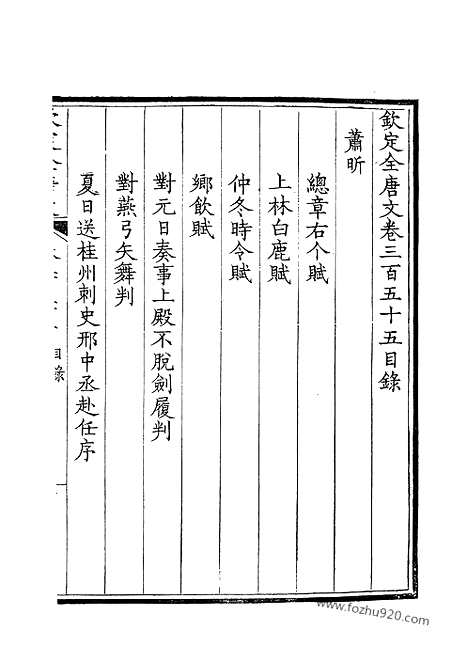 欽定全唐文卷三百五十五目錄
蕭昕
總章右个賦
上林白鹿賦
仲冬時令賦
鄉飲賦
對元日奏事上殿不脫劍履判
對燕弓矢舞判
夏日送桂州刺史邢中丞赴任序
目錄
www.fozhu920.com